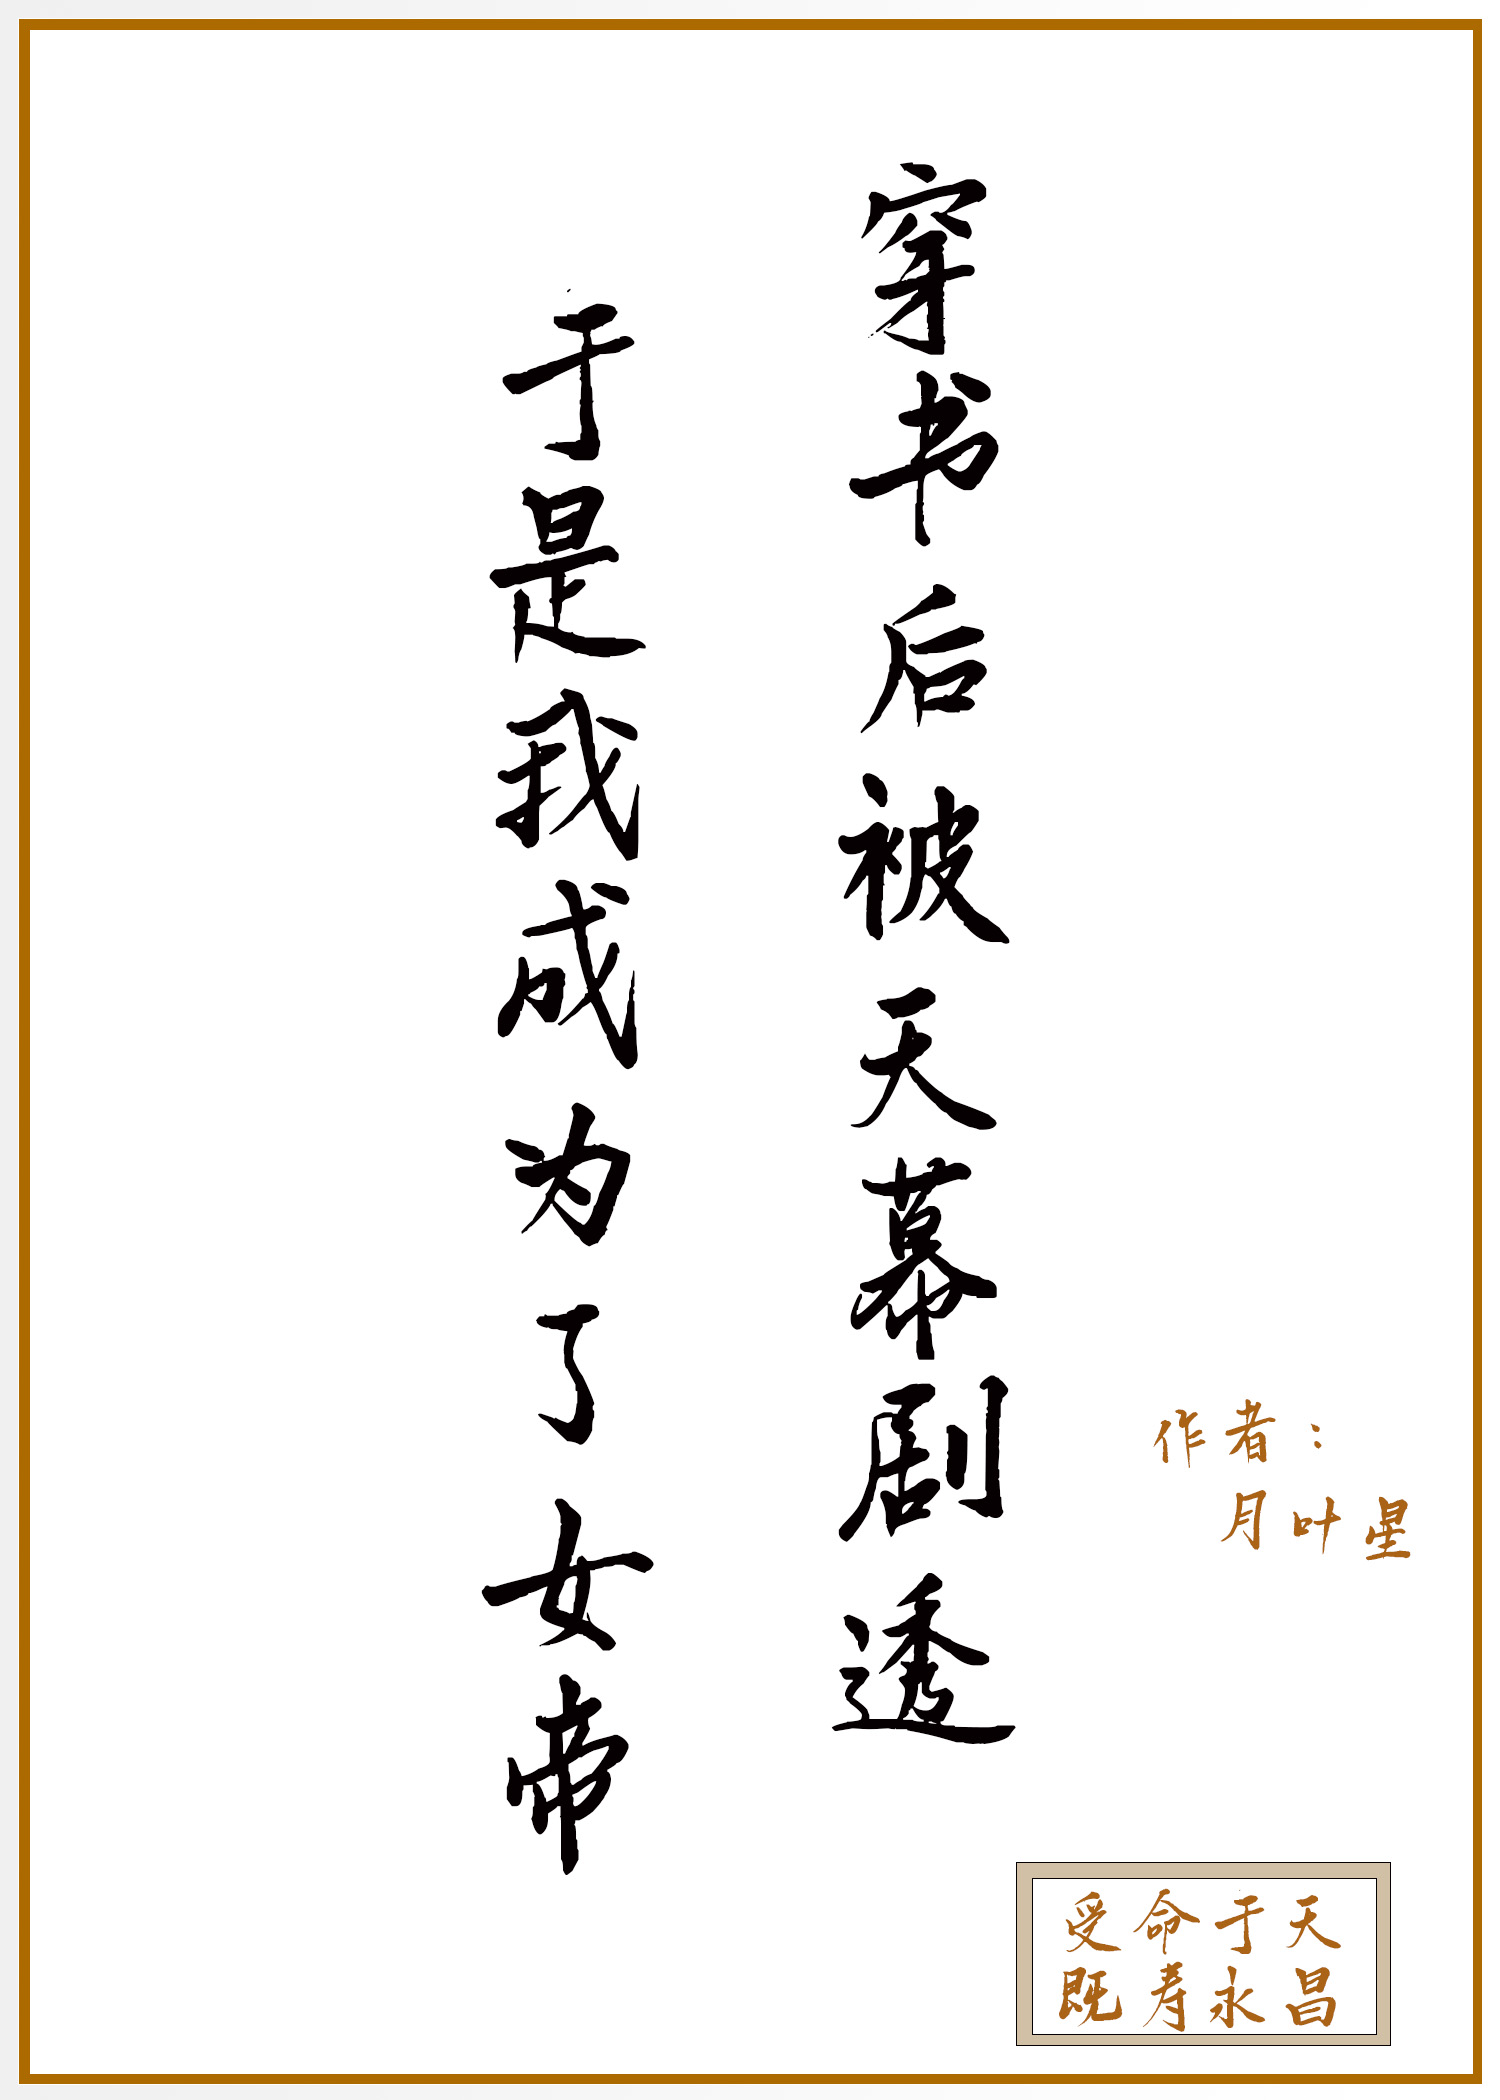 穿书后被天幕剧透
于是我成为了女帝
作者：
月叶星
受命于天
既寿永昌